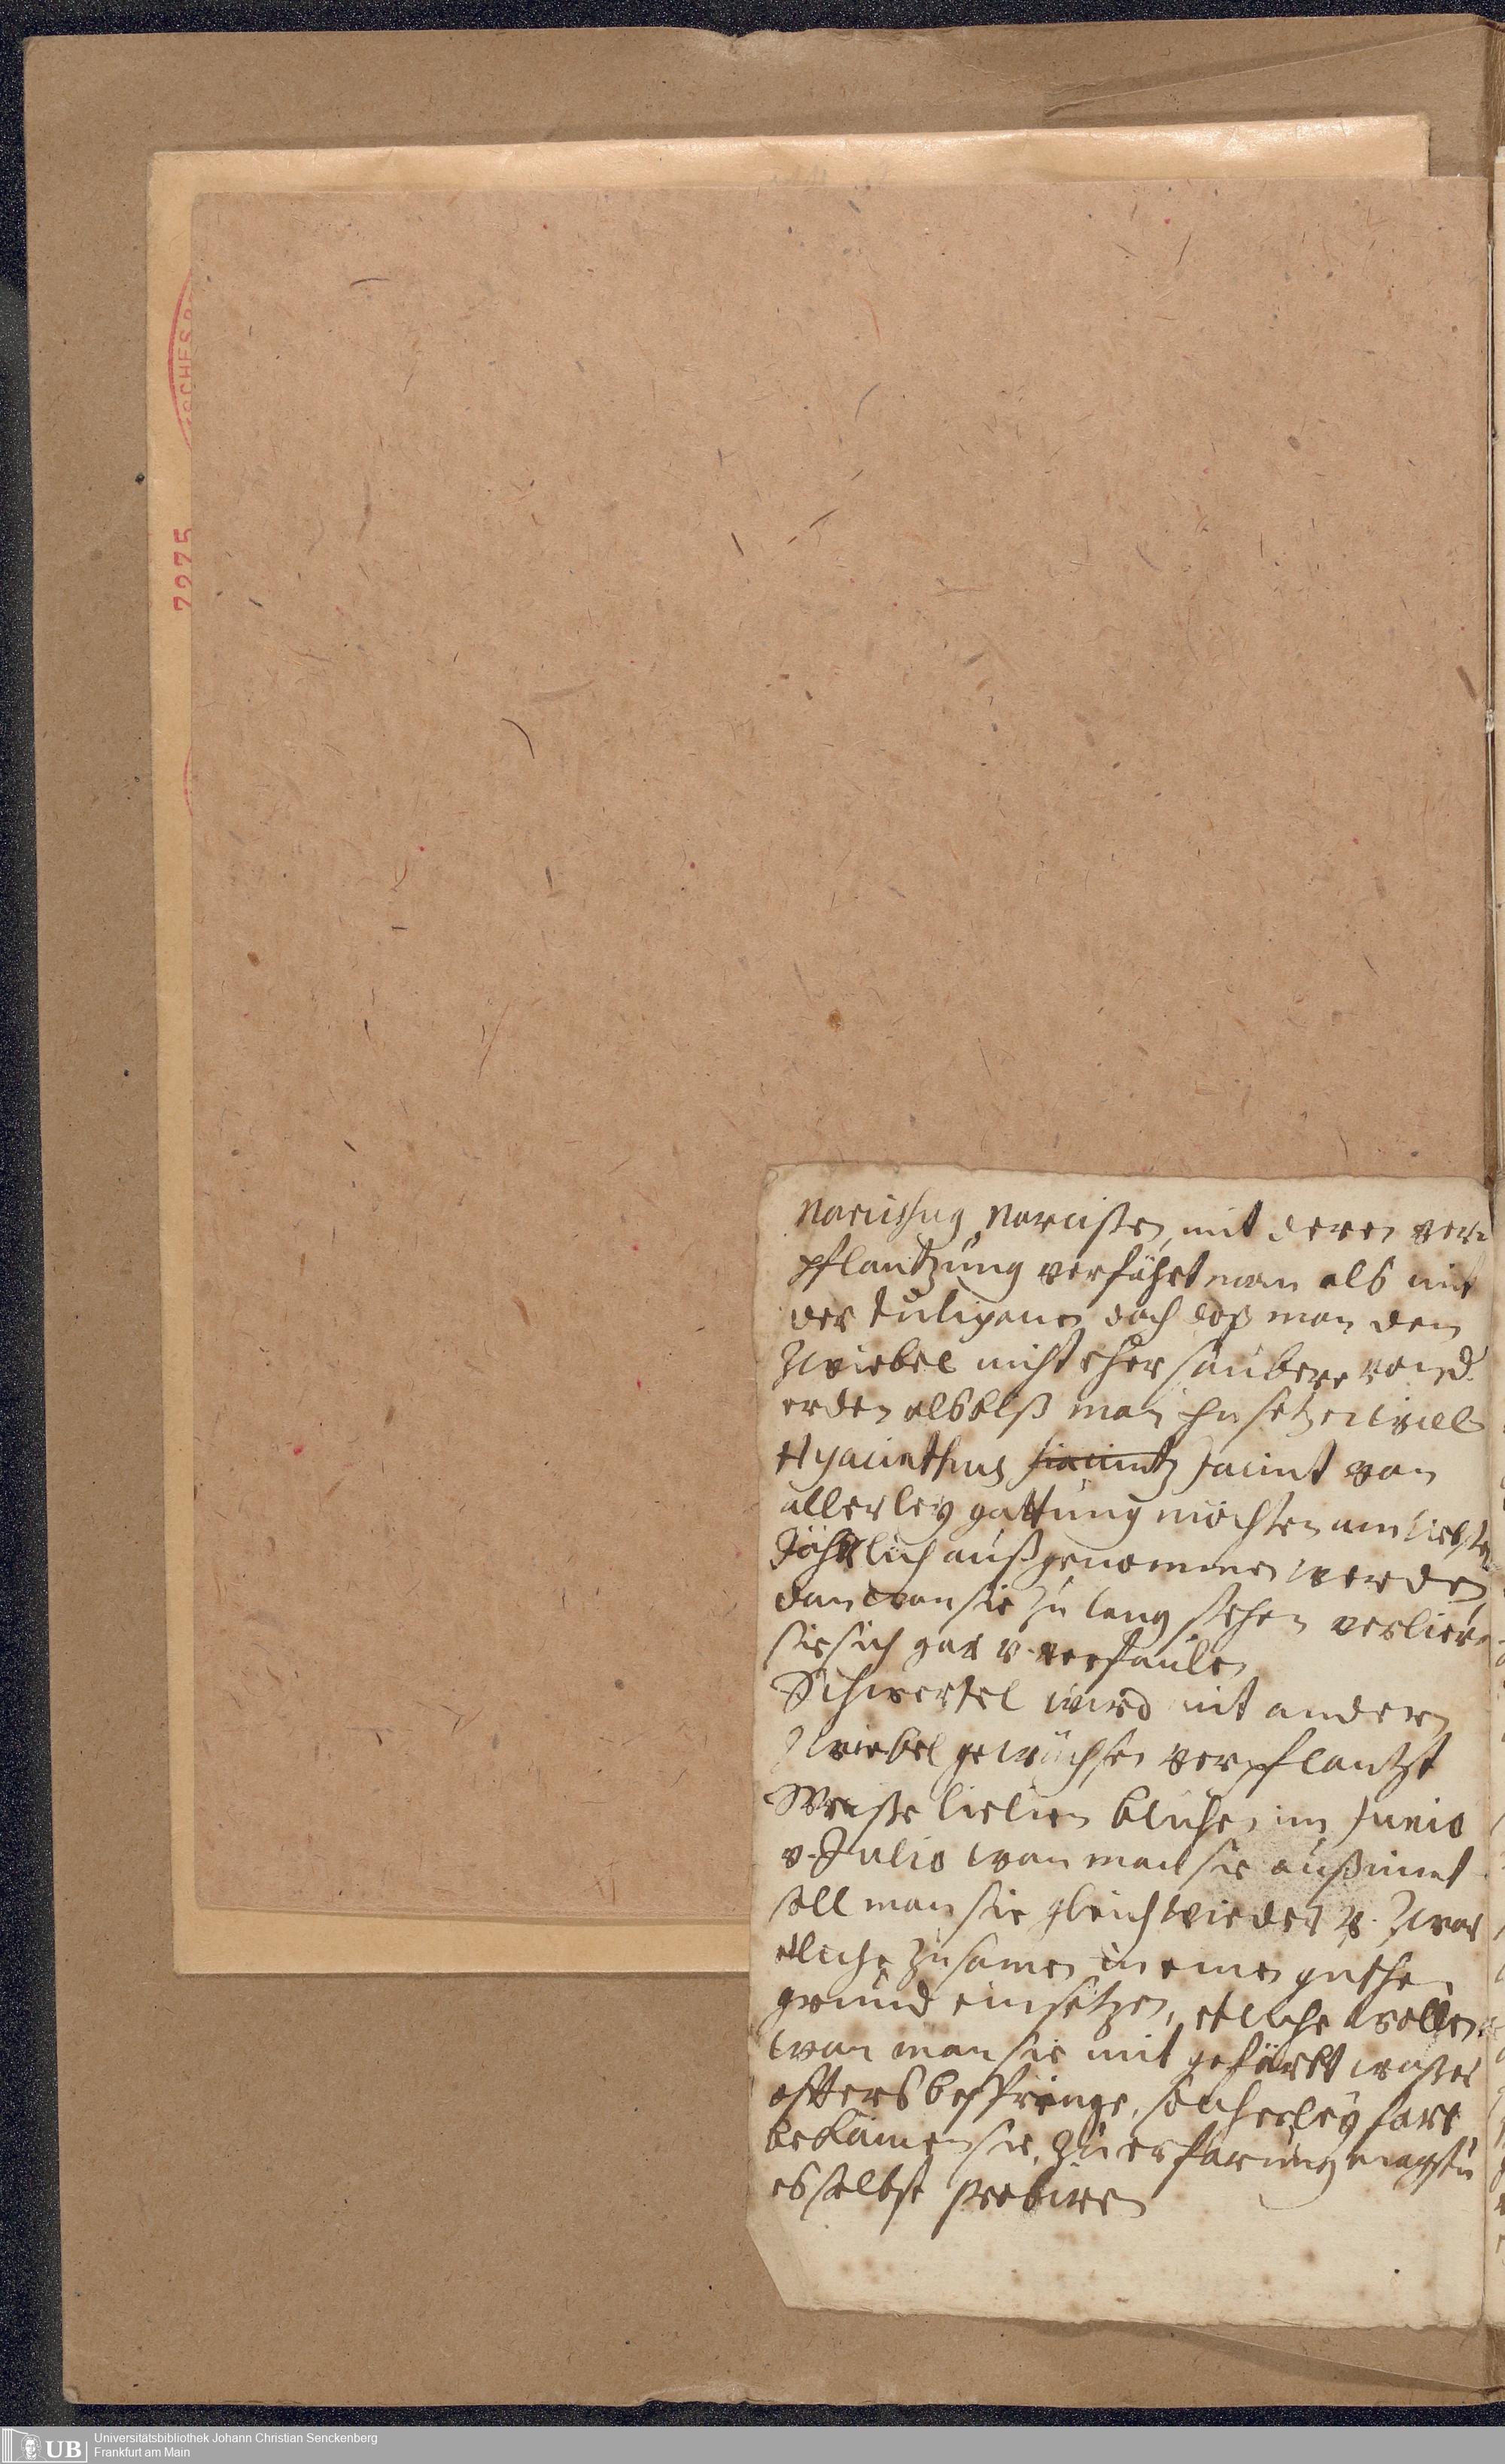 Narcissus, Narcißen, mit deren ver
pflantzung verfährt man als mit
der tulipanen doch daß man den
Zwiebel nicht eher saubere von d.
erden alsbiß man ihn setzen will
Hyacinthus Hiacint Jacint von
allerley gattung möchten am liebsten
Jährlich außgenommen werden,
dan wan sie zu lang stehen verlieren
sie sich gar v. verfaulen
Schwertel wird mit andern
Zwiebel gewächsen verpflantzt
Weiße lielien blühen im Junio
v. Julio wan man sie außnimt
soll man sie gleich wieder v. zwar
etliche zusamen in einen guthen
grund einsetzen, etliche wollen
wan man sie mit gefärbt waßer
öffters besprenge, solcherley farb
bekämen sie, zu erfarung magstu
es selbst probiren
7275
UB
Universitätsbibliothek Johann Christian Senckenberg
Frankfurt am Main